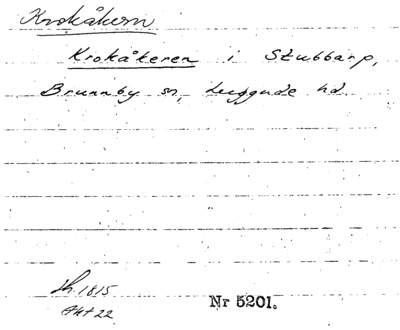 Krokåkern
Krokåkeren i Stubbarp,
Brunnby sn, Luggude hd.
Sk. 1815
Akt 22
Nr 5201.